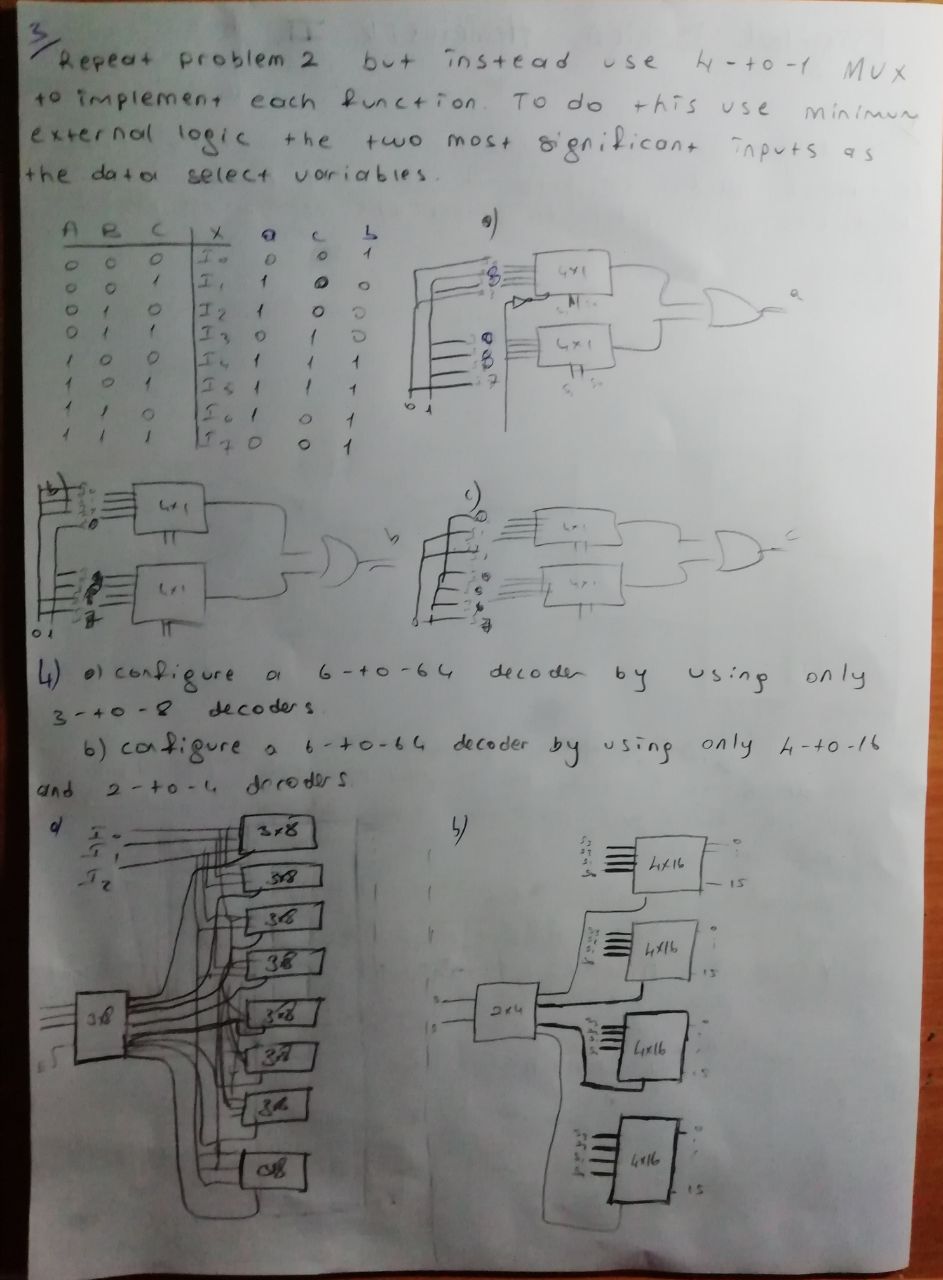 3
Repeat problem 2 but instead use 4-to-1 MUX
to implement each function. To do this use minimum
external logic the two most significant inputs as
the data select variables.
A B C X a c b
0 0 0 I0 0 0 1
0 0 1 I1 1 0 0
0 1 0 I2 1 0 0
0 1 1 I3 0 1 0
1 0 0 I4 1 1 1
1 0 1 I5 1 1 1
1 1 0 I6 1 0 1
1 1 1 I7 0 0 1
a)
4x1
4x1
7
0 1
a
b)
4x1
4x1
0 1
b
c)
4x1
4x1
0 1
c
4) a) configure a 6-to-64 decoder by using only
3-to-8 decoders
b) configure a 6-to-64 decoder by using only 4-to-16
and 2-to-4 drcoders
a)
I0
I1
I2
3x8
3x8
3x8
3x8
3x8
3x8
3x8
3x8
b)
2x4
4x16
0
15
4x16
0
15
4x16
15
4x16
0
15